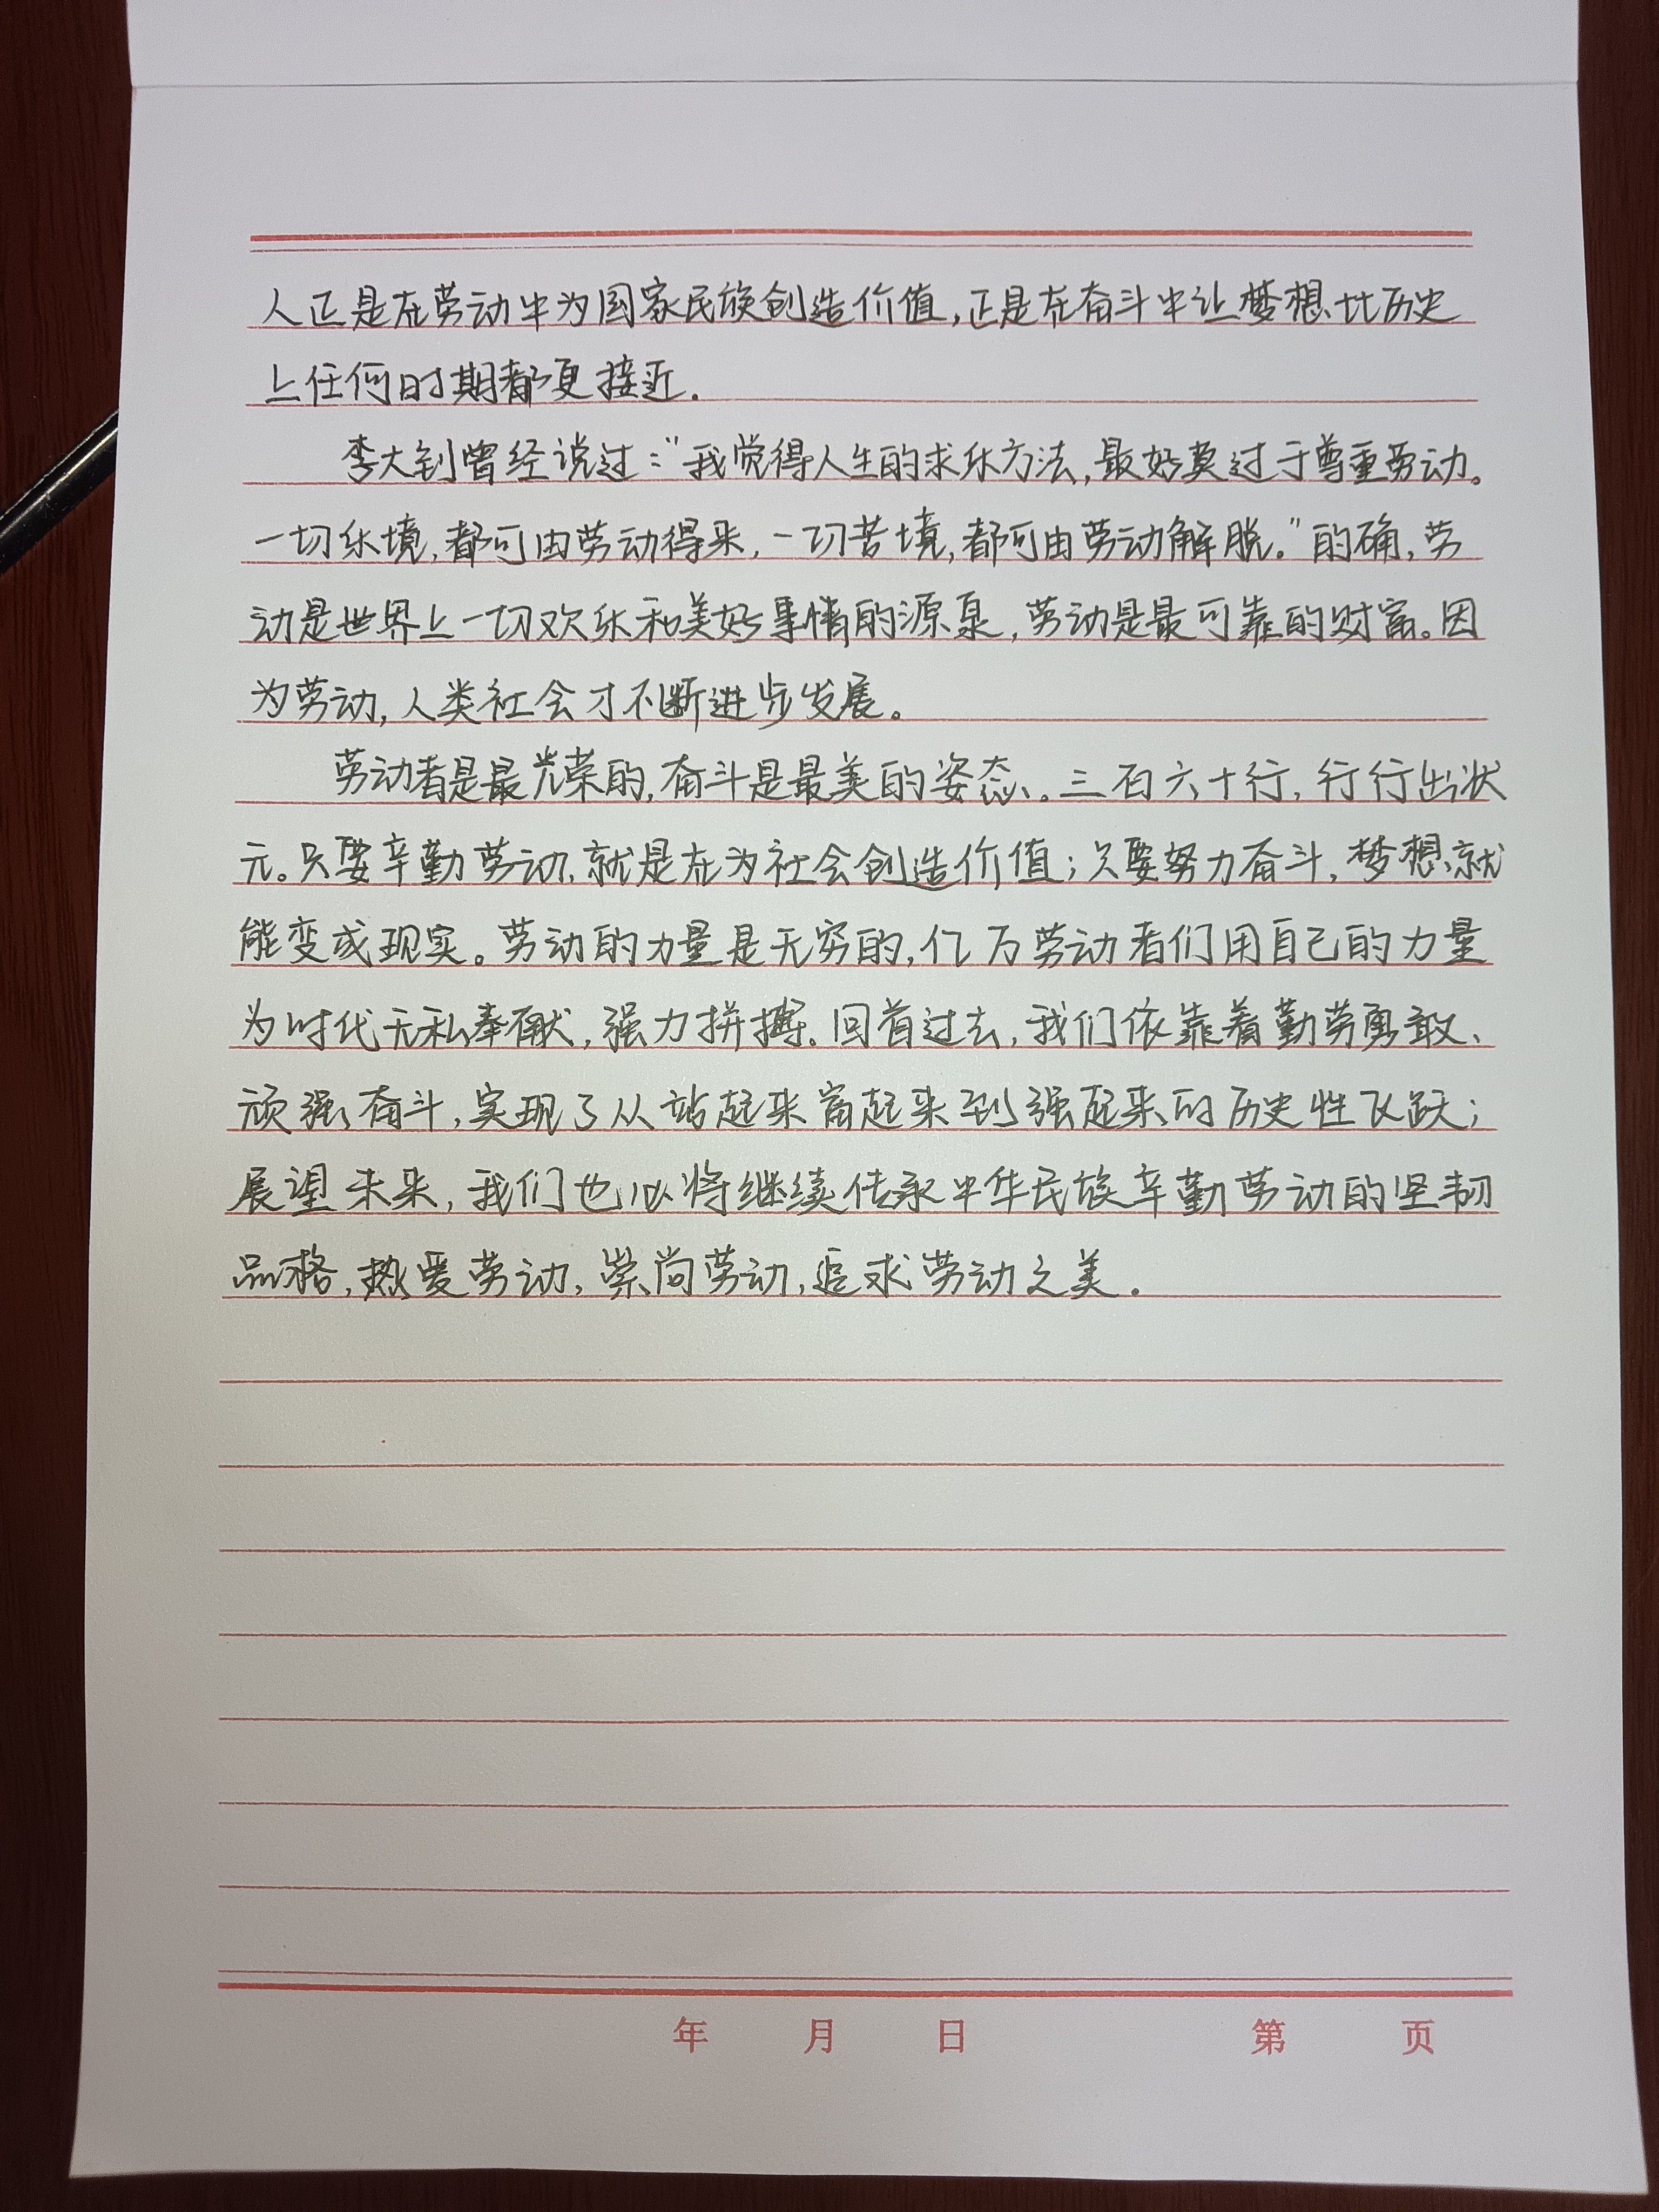 人正是在劳动中为国家民族创造价值,正是在奋斗中让梦想比历史
上任何时期都更接近.
李大钊曾经说过:“我觉得人生的求乐方法,最好莫过于尊重劳动。
一切乐境,都可由劳动得来,一切苦境,都可由劳动解脱。”的确,劳
动是世界上一切欢乐和美好事情的源泉,劳动是最可靠的财富。因
为劳动,人类社会才不断进步发展。
劳动者是最光荣的,奋斗是最美的姿态。三百六十行,行行出状
元。只要辛勤劳动,就是在为社会创造价值;只要努力奋斗,梦想就
能变成现实。劳动的力量是无穷的,亿万劳动者们用自己的力量
为时代无私奉献,强力拼搏。回首过去,我们依靠着勤劳勇敢、
顽强奋斗,实现了从站起来富起来到强起来的历史性飞跃;
展望未来,我们也必将继续传承中华民族辛勤劳动的坚韧
品格,热爱劳动,崇尚劳动,追求劳动之美.
年 月 日 第 页